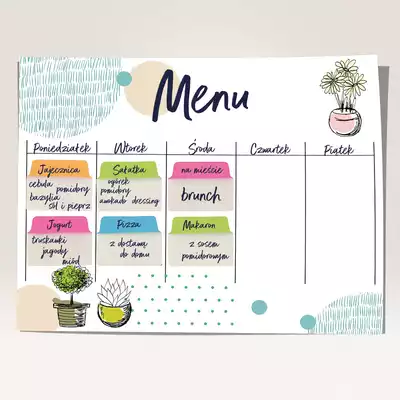 Menu
Poniedziałek Wtorek Środa Czwartek Piątek
Jajecznica
cebula pomidory
bazylia
sól i pieprz
Sałatka
ogórek
pomidory
awokado dressing
na mieście
brunch
Jogurt
truskawki
jagody
miód
Pizza
z dostawą
do domu
Makaron
z sosem
pomidorowym